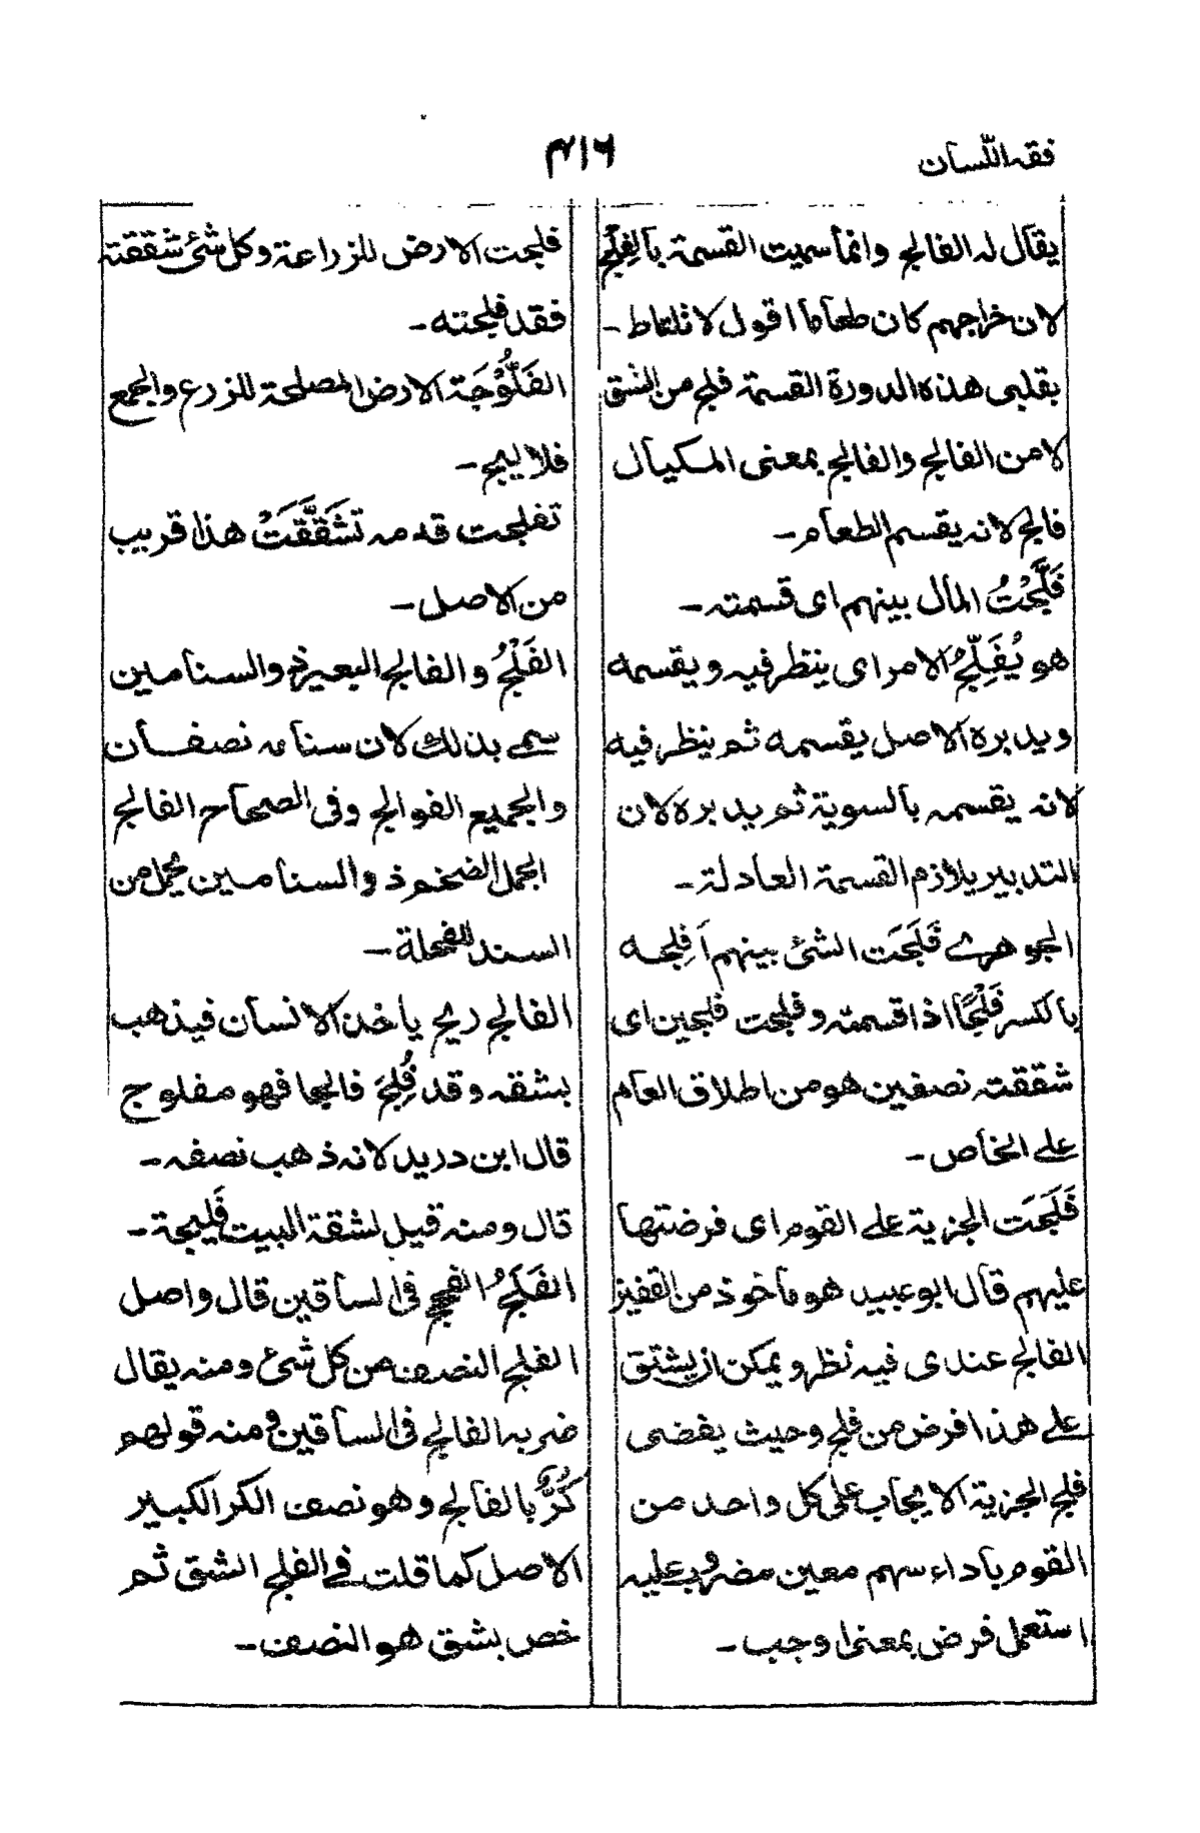 فقه اللسان
۴۱۶
يقال له الفالج وانما سميت القسمة بالفِلْج
لان خراجهم كان طعاما اقول لا نلتاط ـ
بقلبى هذه الدورة القسمة فلج من الشق
لا من الفالج والفالج بمعنى المكيال
فالج لانه يقسم الطعام ـ
فَلَّجْتُ المال بينهم اى قسمته ـ
هو يُفَلِّجُ الامر اى ينتظر فيه و يقسمه
ويدبره الاصل يقسمه ثم ينظر فيه
لانه يقسمه بالسوية ثم يدبره لان
التدبير يلازم القسمة العادلة ـ
الجوهرے فَلَجَت الشئ بينهم اَفِلجه
بالكسر فَلْجًا اذا قسمته وفلجت فلجين اى
شققته نصفين هو من اطلاق العام
علے الخاص ـ
فَلَجَت الجزية علے القوم اى فرضتها
عليهم قال ابو عبيد هو ماخوذ من القفيز
الفالج عندى فيه نظر و يمكن ان يشتق
علے هذا فرض من فلج وحيث يفضى
فلج الجزية الايجاب على كل واحد من
القوم باداء سهم معين مضروب عليه
استعمل فرض بمعنى اوجب ـ
فلجت الارض للزراعة وكل شئ شققته
فقد فلجته ـ
الفَلُّوْجَة الارض المصلحة للزرع والجمع
فلاليج ـ
تفلجت قدمه تشَقَّقَتْ هذا قريب
من الاصل ـ
الفَلْجُ والفالج البعير ذو السنامين
سمے بذلك لان سنامه نصفان
والجميع الفوالج وفى الصحاح الفالج
الجمل الضخم ذو السنامين يحمل من
السند للفحلة ـ
الفالج ريح ياخذ الانسان فيذهب
بشقه وقد فُلِجَ فالجا فهو مفلوج
قال ابن دريد لانه ذهب نصفه ـ
قال ومنه قيل لشقة البيت فَليجة ـ
الفَلَجُ الفحج فى الساقين قال واصل
الفلج النصف من كل شئ ومنه يقال
ضربه الفالج فى الساقين ومنه قولهم
كُرٌّ بالفالج وهو نصف الكر الكبير
الاصل كما قلت فے الفلج الشق ثم
خص بشق هو النصف ـ